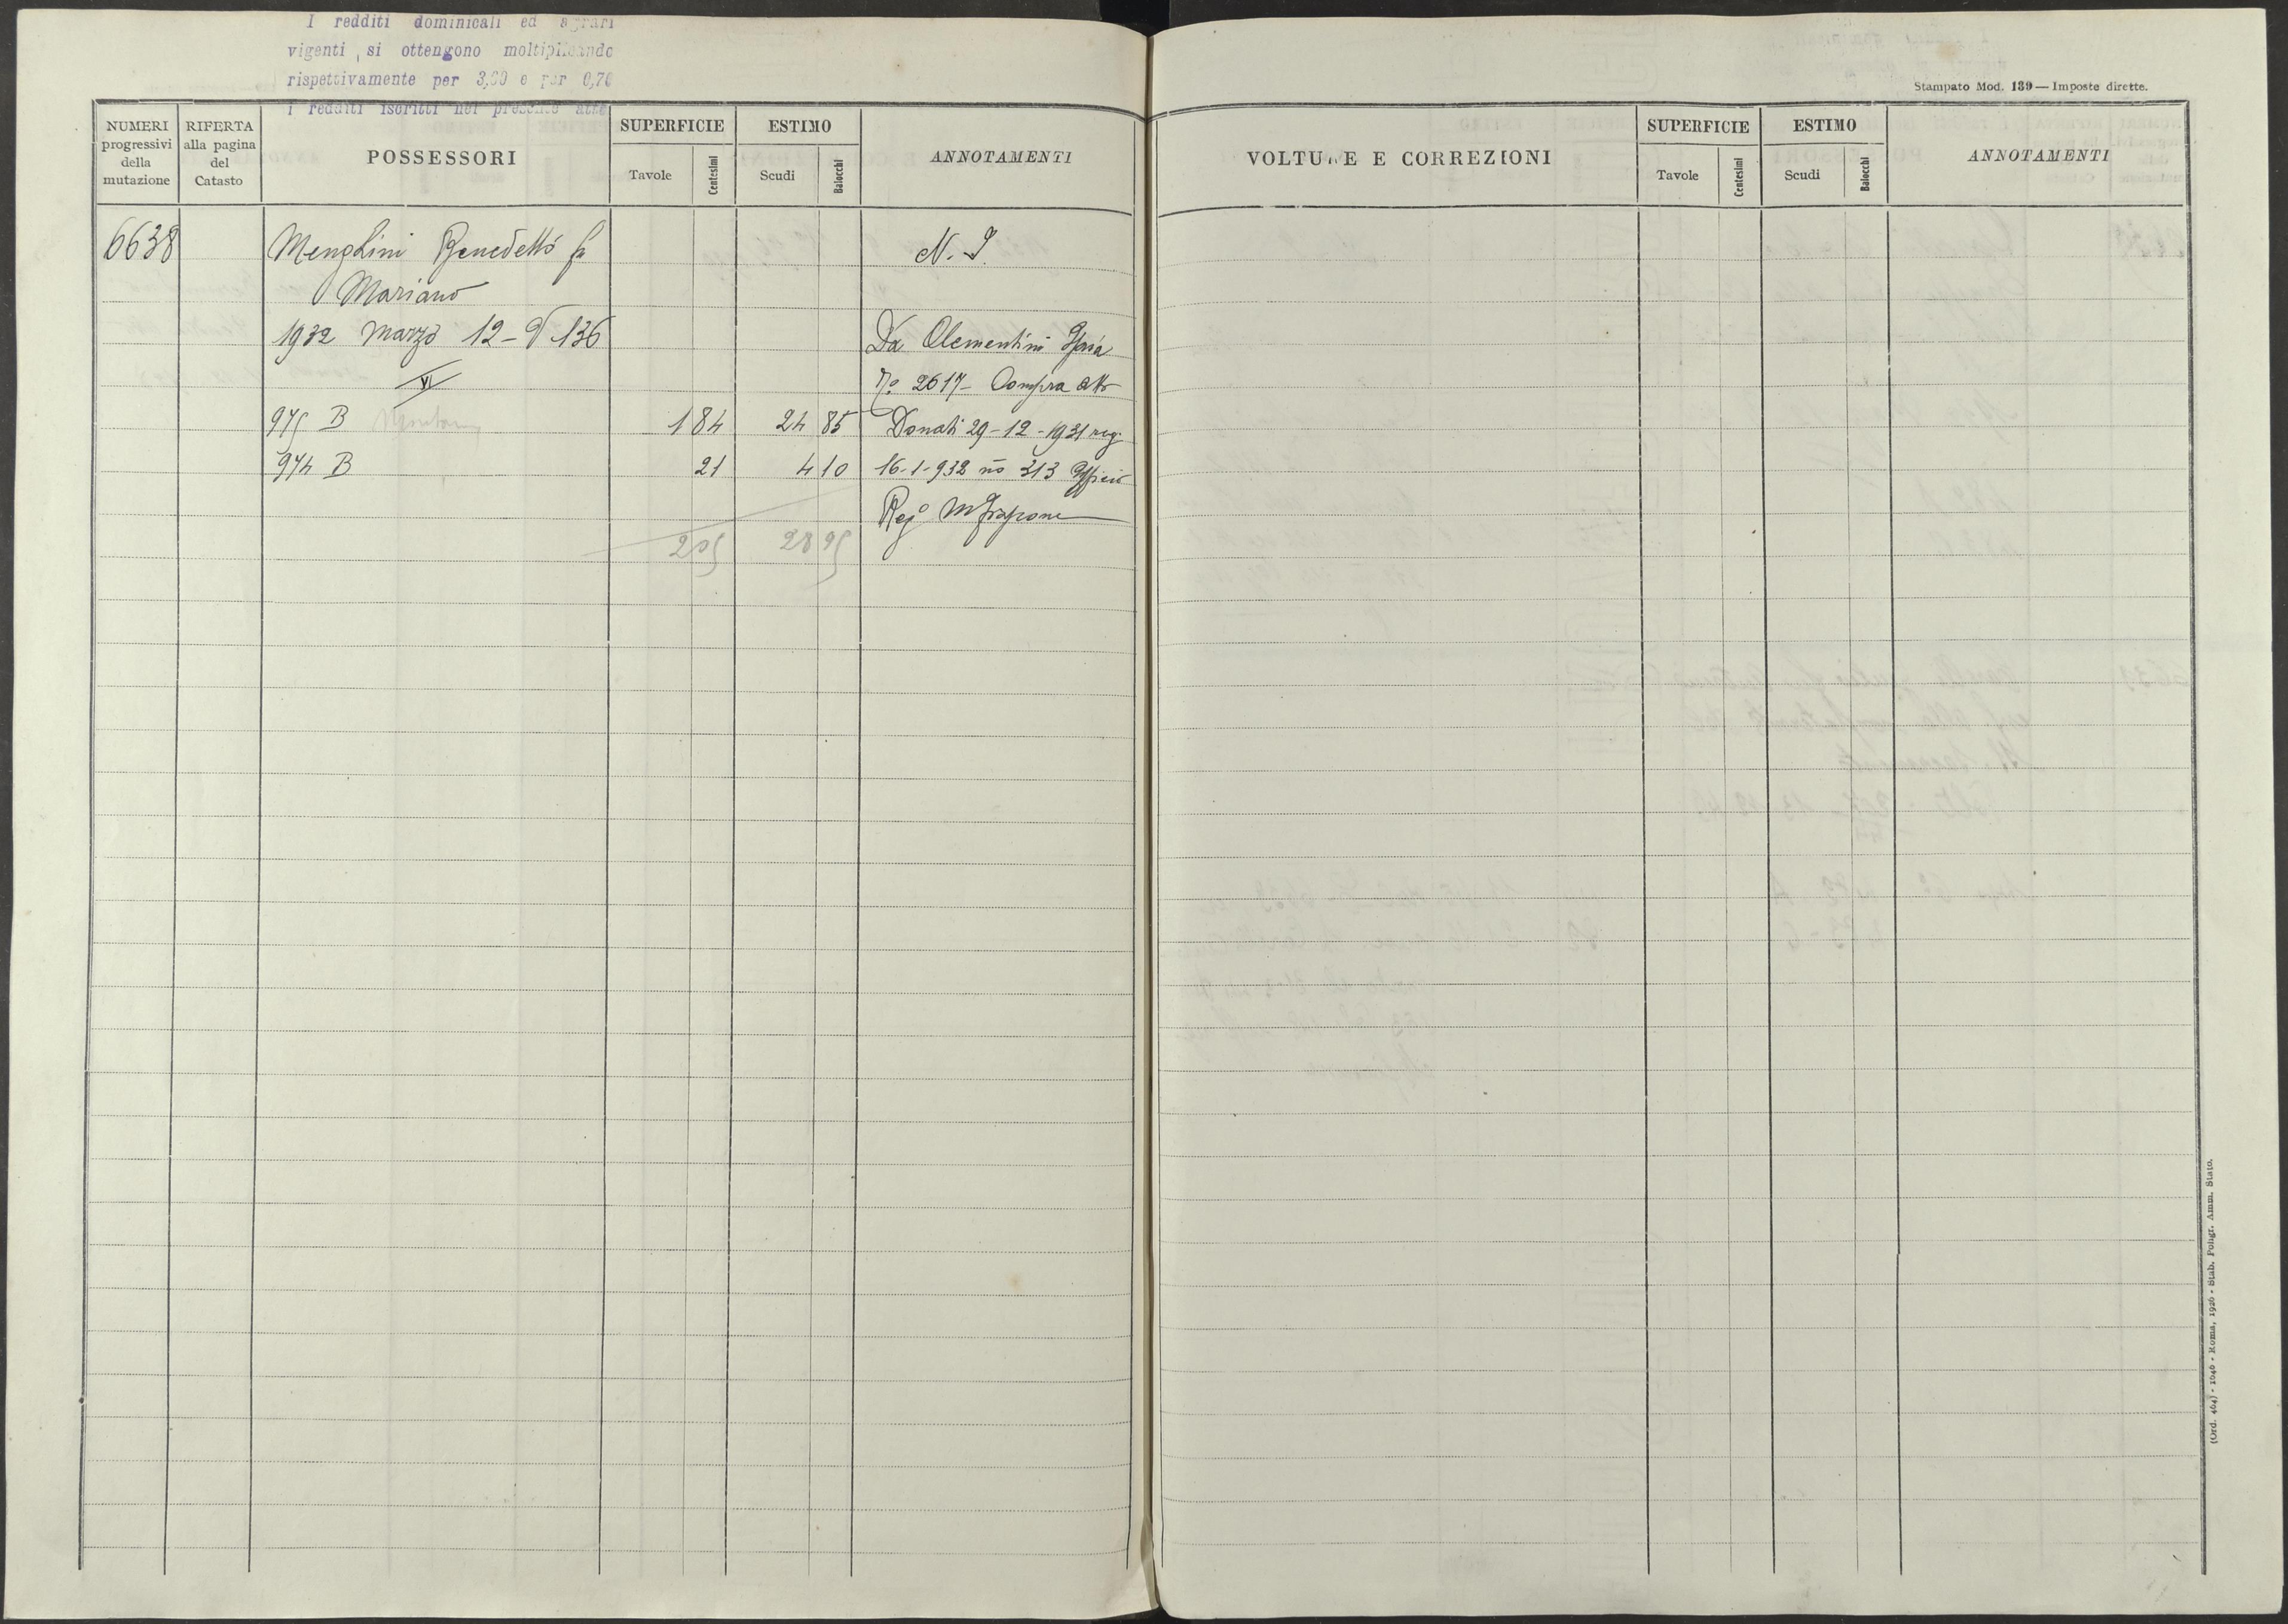 I redditi dominicali ed agrari
vigenti, si ottengono moltiplicando
rispettivamente per 3,00 e per 0,70
i redditi iscritti nel presente atto
NUMERI progressivi della mutazione
RIFERTA alla pagina del Catasto
POSSESSORI
SUPERFICIE
Tavole
Centesimi
ESTIMO
Scudi
Baiocchi
ANNOTAMENTI
6638 Menghini Benedetto fu N. I.
Mariano
1932 Marzo 12 - V 136 Da Clementini
VI no 2617 - Compra atto
975 B 1 84 24 85 Donati 29-12-1931 reg.
974 B 21 4 10 16-1-932 no 313 Ufficio
Rego
2 05 28 95
Stampato Mod. 139 — Imposte dirette.
VOLTURE E CORREZIONI
SUPERFICIE
Tavole
Centesimi
ESTIMO
Scudi
Baiocchi
ANNOTAMENTI
(Ord. 464) - 1046 - Roma, 1926 - Stab. Poligr. Amm. Stato.